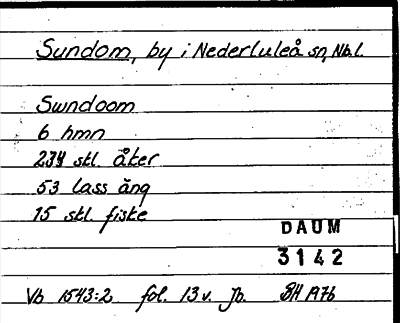 Sundom, by i Nederluleå sn, Nb. l.
Swndoom
6 hmn
234 skl. åker
53 lass äng
15 skl. fiske
DAUM
3142
Vb 1543:2 fol. 13 v. Jb. BH A76